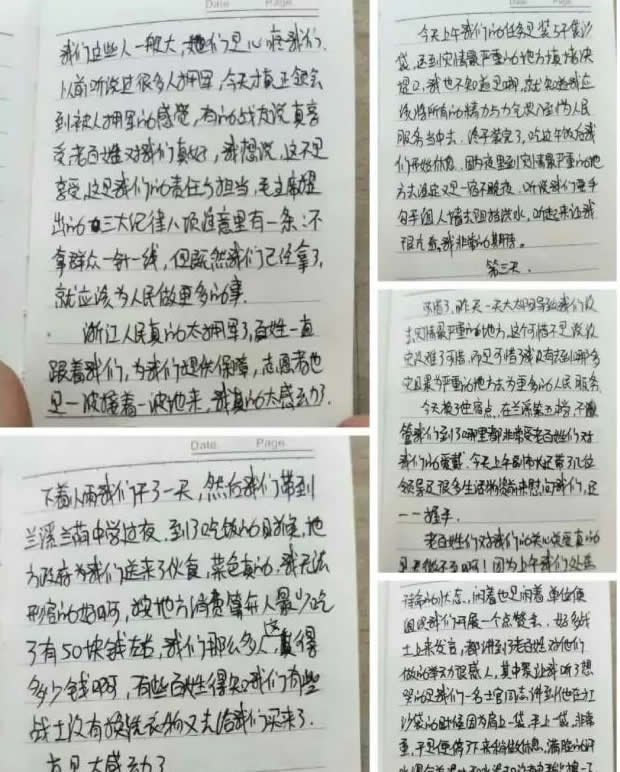 我们这些人一般大,她们是心疼我们.
以前听说过很多人拥军,今天才真正领会
到被人拥军的感觉,有的战友说真享
受老百姓对我们真好,我想说,这不是
享受,这是我们的责任与担当,毛主席提
出的三大纪律八项注意里有一条:不
拿群众一针一线,但既然我们已经拿了,
就应该为人民做更多的事.
浙江人民真的太拥军了,百姓一直
跟着我们,为我们提供保障,志愿者也
是一波接着一波地来,我真的太感动了.
Date Page
下着小雨我们干了一天,然后我们带到
兰溪兰荫中学过夜.到了吃饭的时候,地
方政府为我们送来了伙食,菜色真的.我无法
形容的好啊,按地方消费算每人最少吃
了有50块钱左右,我们那么多人,这得
多少钱啊,有些百姓得知我们有些
战士没有换洗衣物又去给我们买来了.
真是太感动了
Date Page
今天上午我们的任务是装5千袋沙
袋,送到灾情最严重的地方填堵决
堤口,我也不知道是哪,就知道我应
该将所有的精力与力气投入到为人民
服务当中去.终于装完了,吃过午饭后我
们开始休息,因为夜里到灾情最严重的地
方去注定又是一宿不眠夜.听说我们要手
勾手组人墙去阻挡洪水,听起来让我
很亢奋,我非常的期待。
第三天.
可惜了,昨天一天大雨导致我们没
去灾情最严重的地方,这个可惜不是说没
灾没难了可惜,而是可惜我没有去到那个
灾且最为严重的地方去为更多的人民服务
今天换了住宿点,在兰溪第五中,不
管我们到了哪里都非常受老百姓们对
我们的爱戴.今天上午副市长还带了几位
领导及很多生活物资前来慰问我们,还
一一握手.
老百姓们对我们的关心关爱真的
是无微不至啊!因为上午我们处在
待命的状态.闲着也是闲着单位便
组织我们开展一个点赞会.好多战
士上来发言,都讲到了老百姓对他们
做的举动很感人,其中最让我听了想
哭的是我们一名士官同志讲到他在扛
沙袋的时候因为肩上一袋,手上一袋,非常
重,于是便停下来稍做休息.满脸的汗